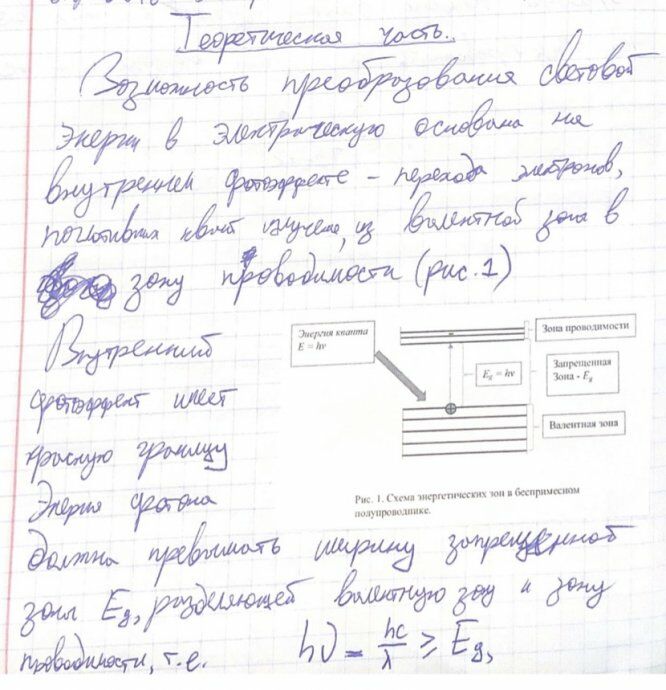 Теоретическая часть.
Возможность преобразования световой
энергии в электрическую основана на
внутреннем фотоэффекте – перехода электронов,
поглотивших квант излучения, из валентной зоны в
зону проводимости (рис. 1)
Внутренний
фотоэффект имеет
красную границу
Энергия фотона
Энергия кванта
E = hν
Зона проводимости
E_g = hν
Запрещенная
Зона - E_g
Валентная зона
Рис. 1. Схема энергетических зон в беспримесном
полупроводнике.
должна превышать ширину запрещенной
зоны Eg, разделяющей валентную зону и зону
проводимости, т.е. hν = hc/λ ≥ Eg,